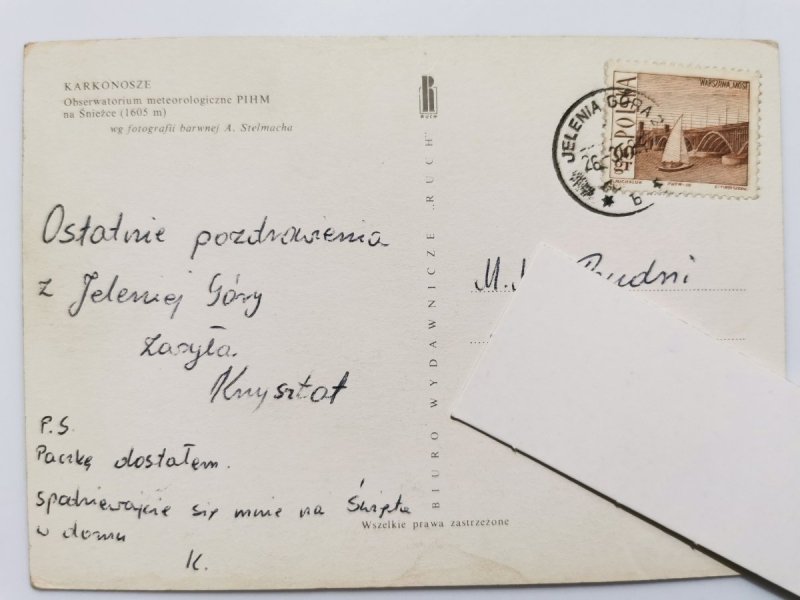 KARKONOSZE
Obserwatorium meteorologiczne PIHM
na Śnieżce (1605 m)
wg fotografii barwnej A. Stelmacha
Ostatnie pozdrowienia
z Jeleniej Góry
zasyła
Krysztof
P.S.
Paczkę dostałem.
spodziewajcie się mnie na Święta
w domu
K.
RUCH
BIURO WYDAWNICZE „RUCH"
Wszelkie prawa zastrzeżone
WARSZAWA, MOST
POLSKA
JELENIA GÓRA 2
M.